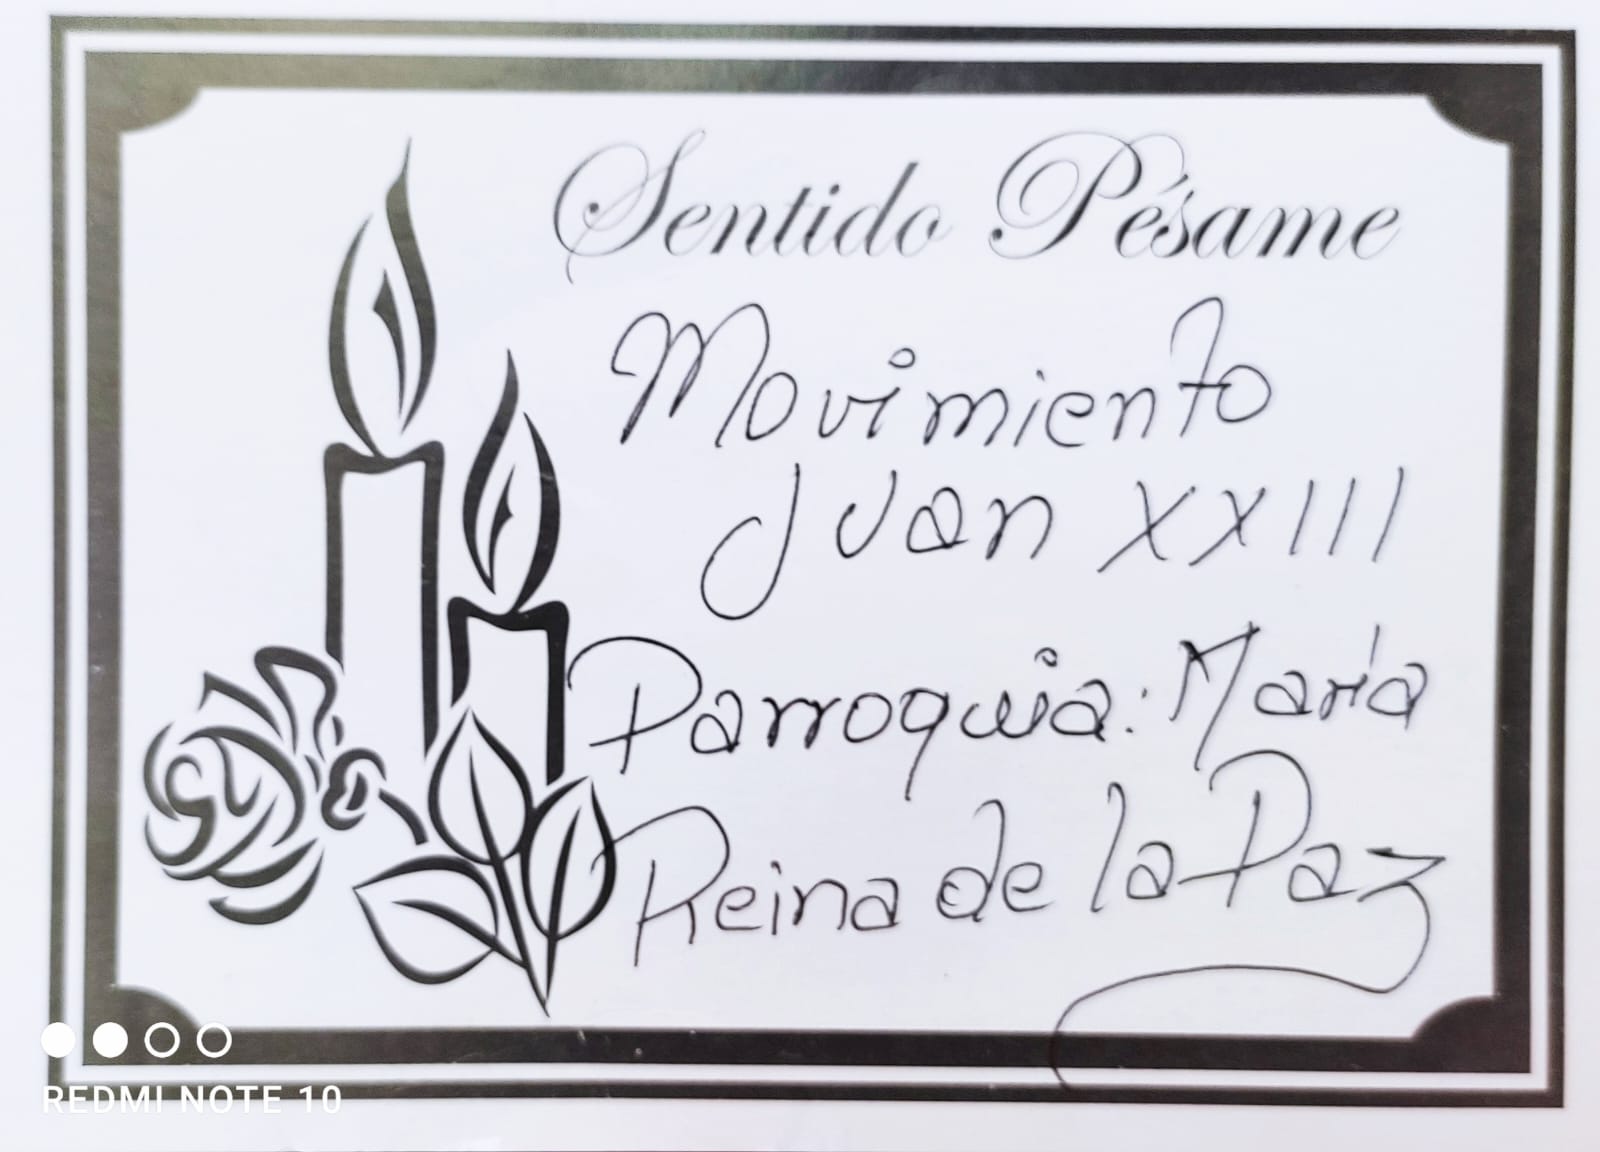 Sentido Pésame
Movimiento
Juan XXIII
Parroquia: María
Reina de la Paz
REDMI NOTE 10